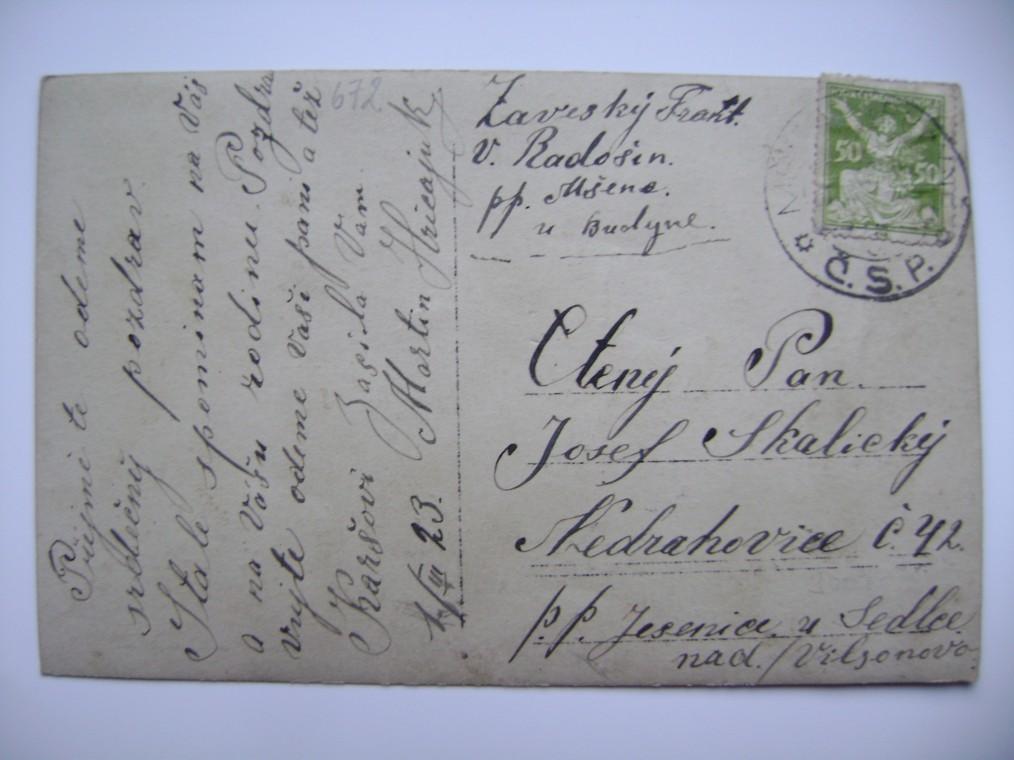 Přijmi te odeme
srdečný pozdrav
Stale spominam na Váš
a na Vášu rodinu. Pozdra
vujte odeme Vaši pani a též
Karšovi Zasila Vam.
Martin Hricajuk
1/III 23.
672
Zaveský Frant.
v. Radošin.
pp. Mšene.
u Budyne.
50 50
Č.S.P.
Ctený Pan.
Josef Skalický
Nedrahovice č. 42.
p.p. Jesenice u Sedlce
nad /Vilsonovo